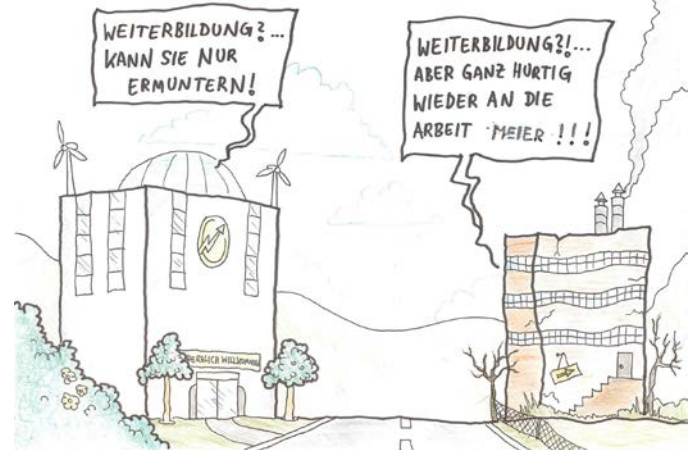 WEITERBILDUNG?...
KANN SIE NUR
ERMUNTERN!
WEITERBILDUNG?!...
ABER GANZ HURTIG
WIEDER AN DIE
ARBEIT MEIER !!!
HERZLICH WILLKOMMEN